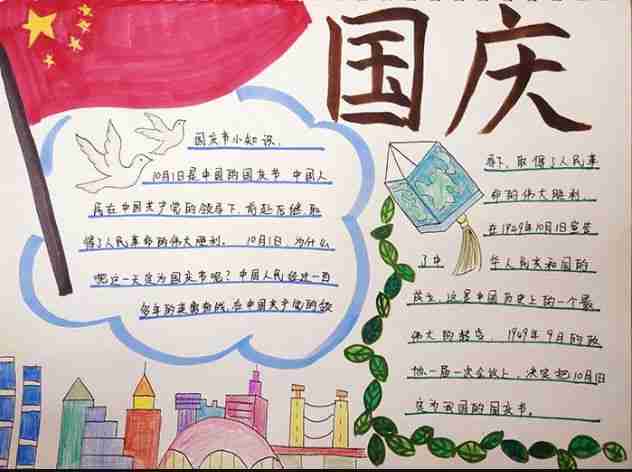 国庆
国庆节小知识.
10月1日是中国的国庆节 中国人
民在中国共产党的领导下,前赴后继,取
得了人民革命的伟大胜利. 10月1日,为什么
呢这一天定为国庆节呢?中国人民经过一百
多年的英勇奋战,在中国共产党的领
导下,取得了人民革
命的伟大胜利.
在1949年10月1日宣告
了中 华人民共和国的
成立,这是中国历史上的一个最
伟大的转变. 1949年9月的政
协一届一次会议上,决定把10月1日
定为我国的国庆节.